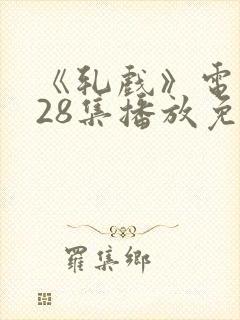 《乳戏》电
28集播放免
羅集鄉